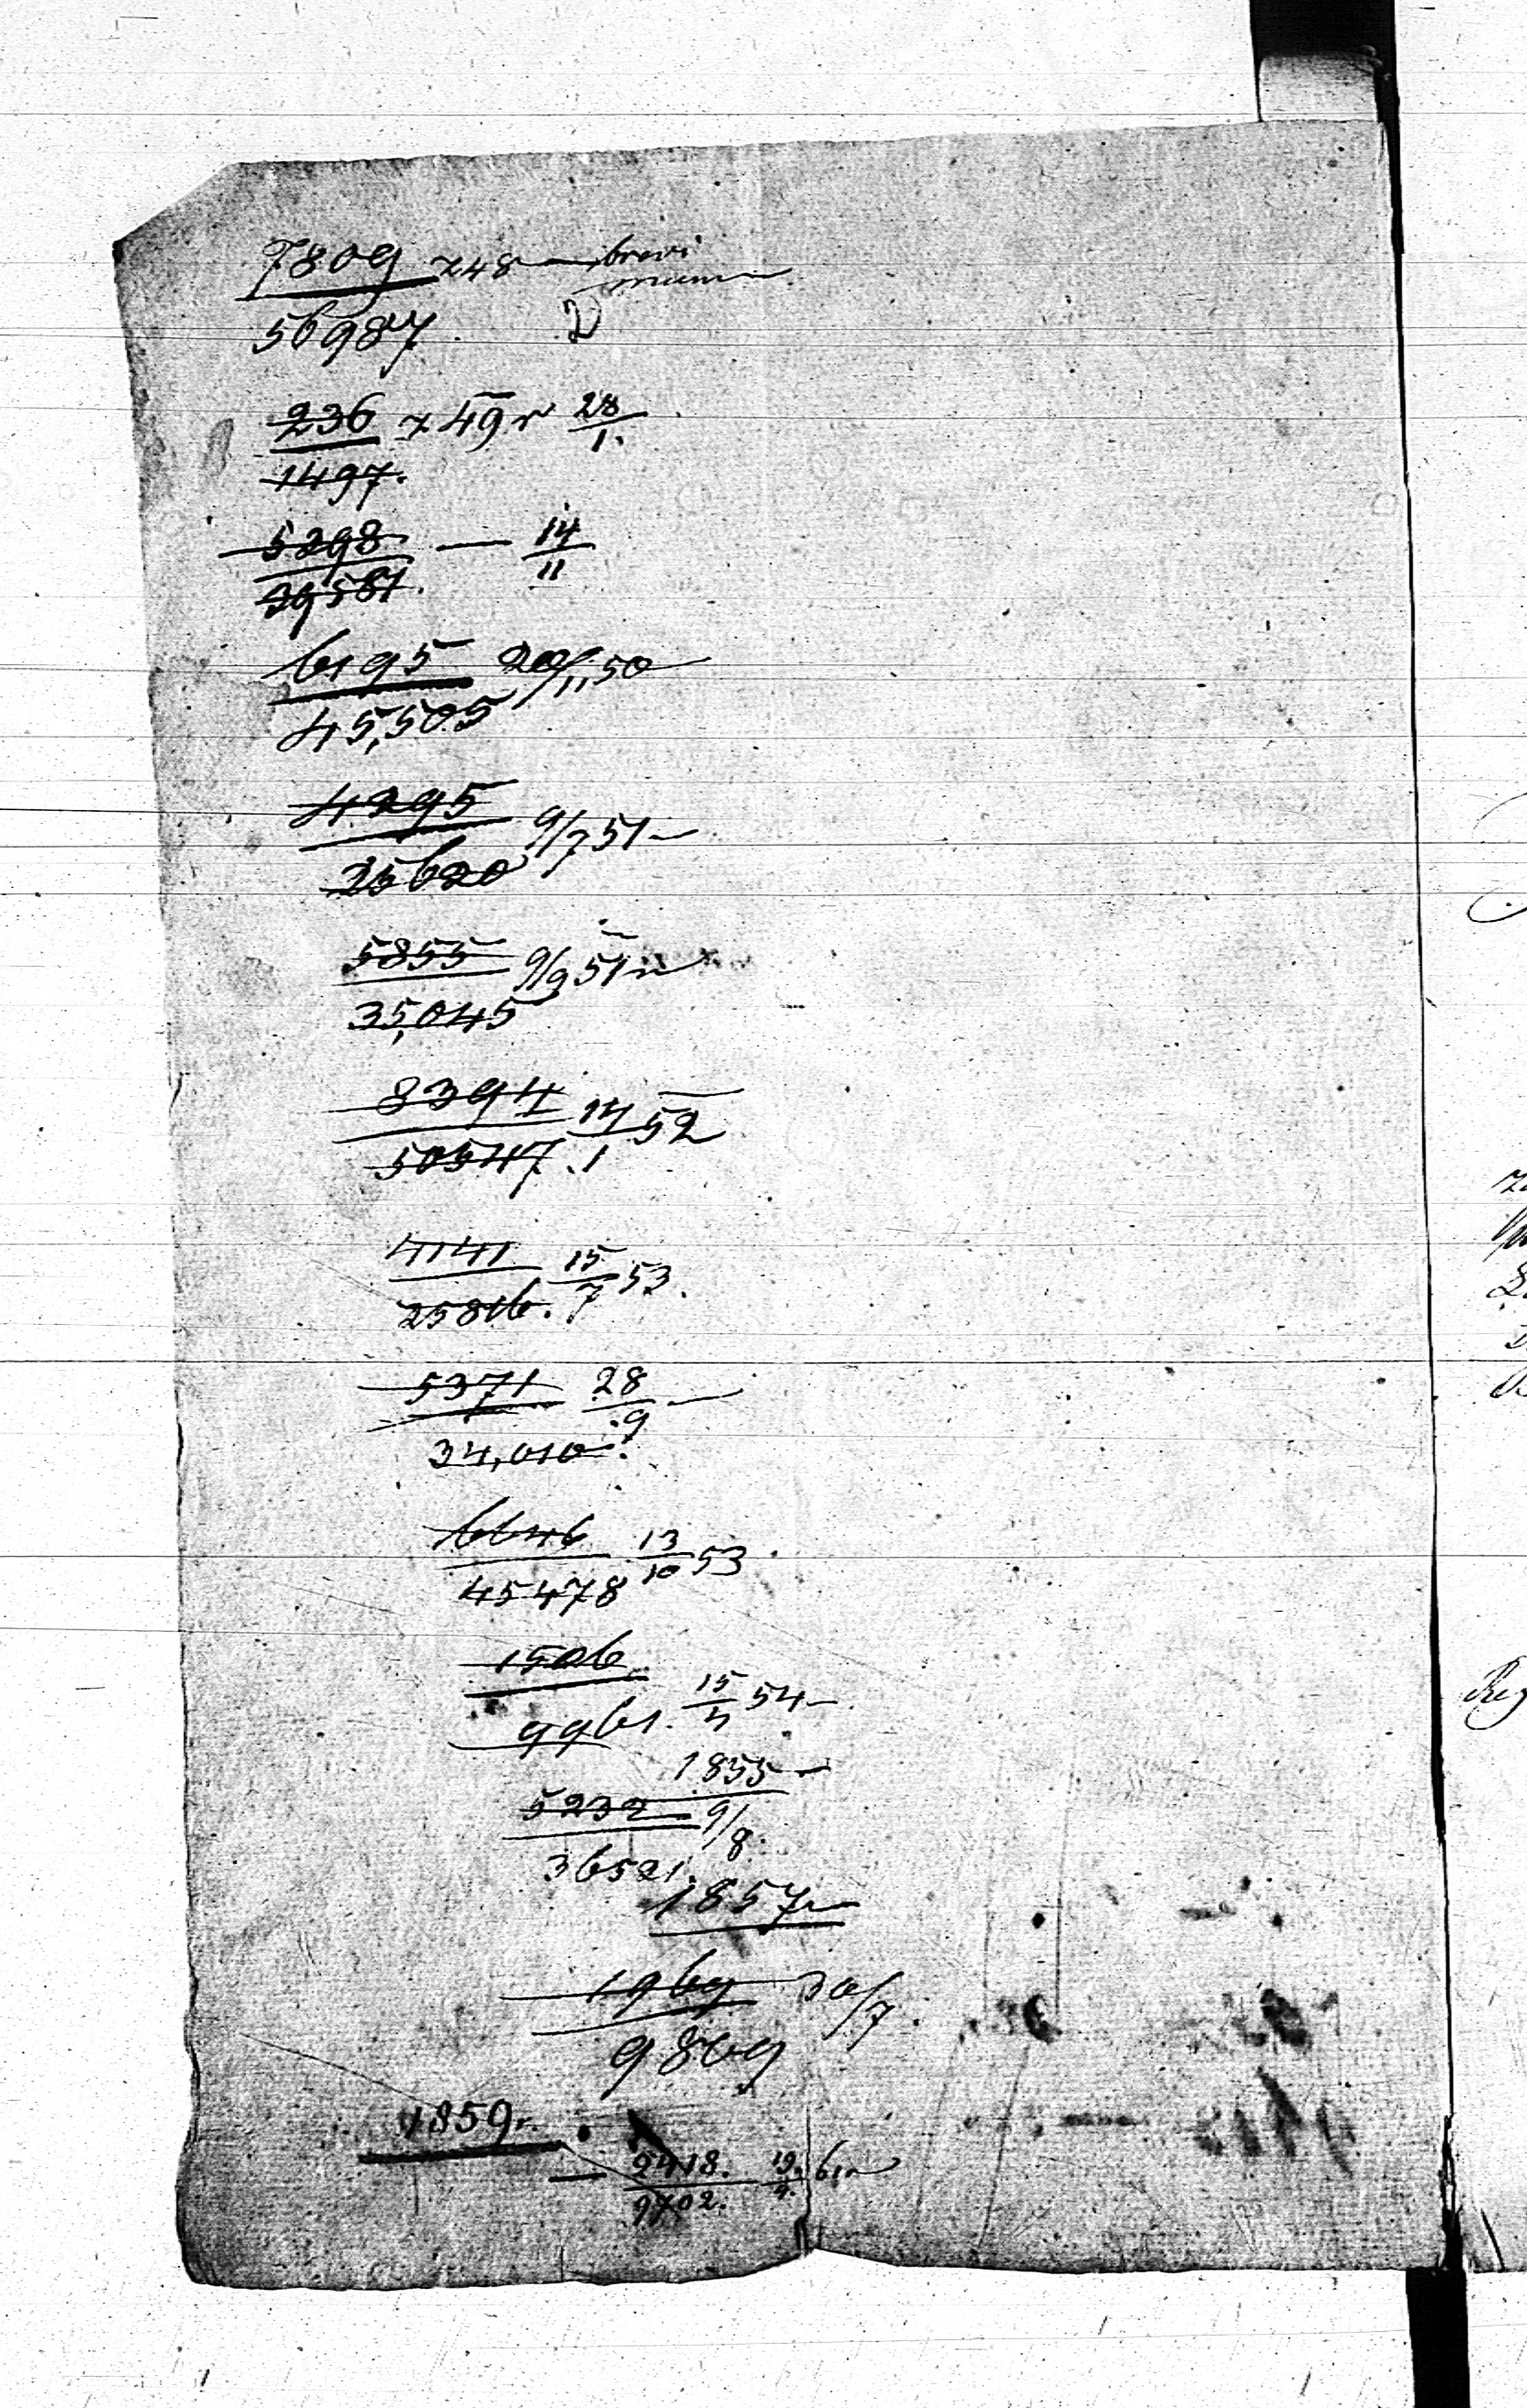 7809 z 48 — brevi
manu
56987 2
236 z 49 r 28/1.
1497.
5298 — 14/11
39581.
6195 20/11 50
45,505
4295 9/7 51
25620
5855 9/9 51 r
35,045
8394 14/1 52
50547.
4141 15/7 53.
25816.
5371 28/9 —
34,010.
6646 13/10 53
45478
1506
9961. 15/4 54
1855
5232 9/8.
36521.
1857 r
1969 30/7
9869
1859 r.
— 2418. 19/4. 61 r
9702.